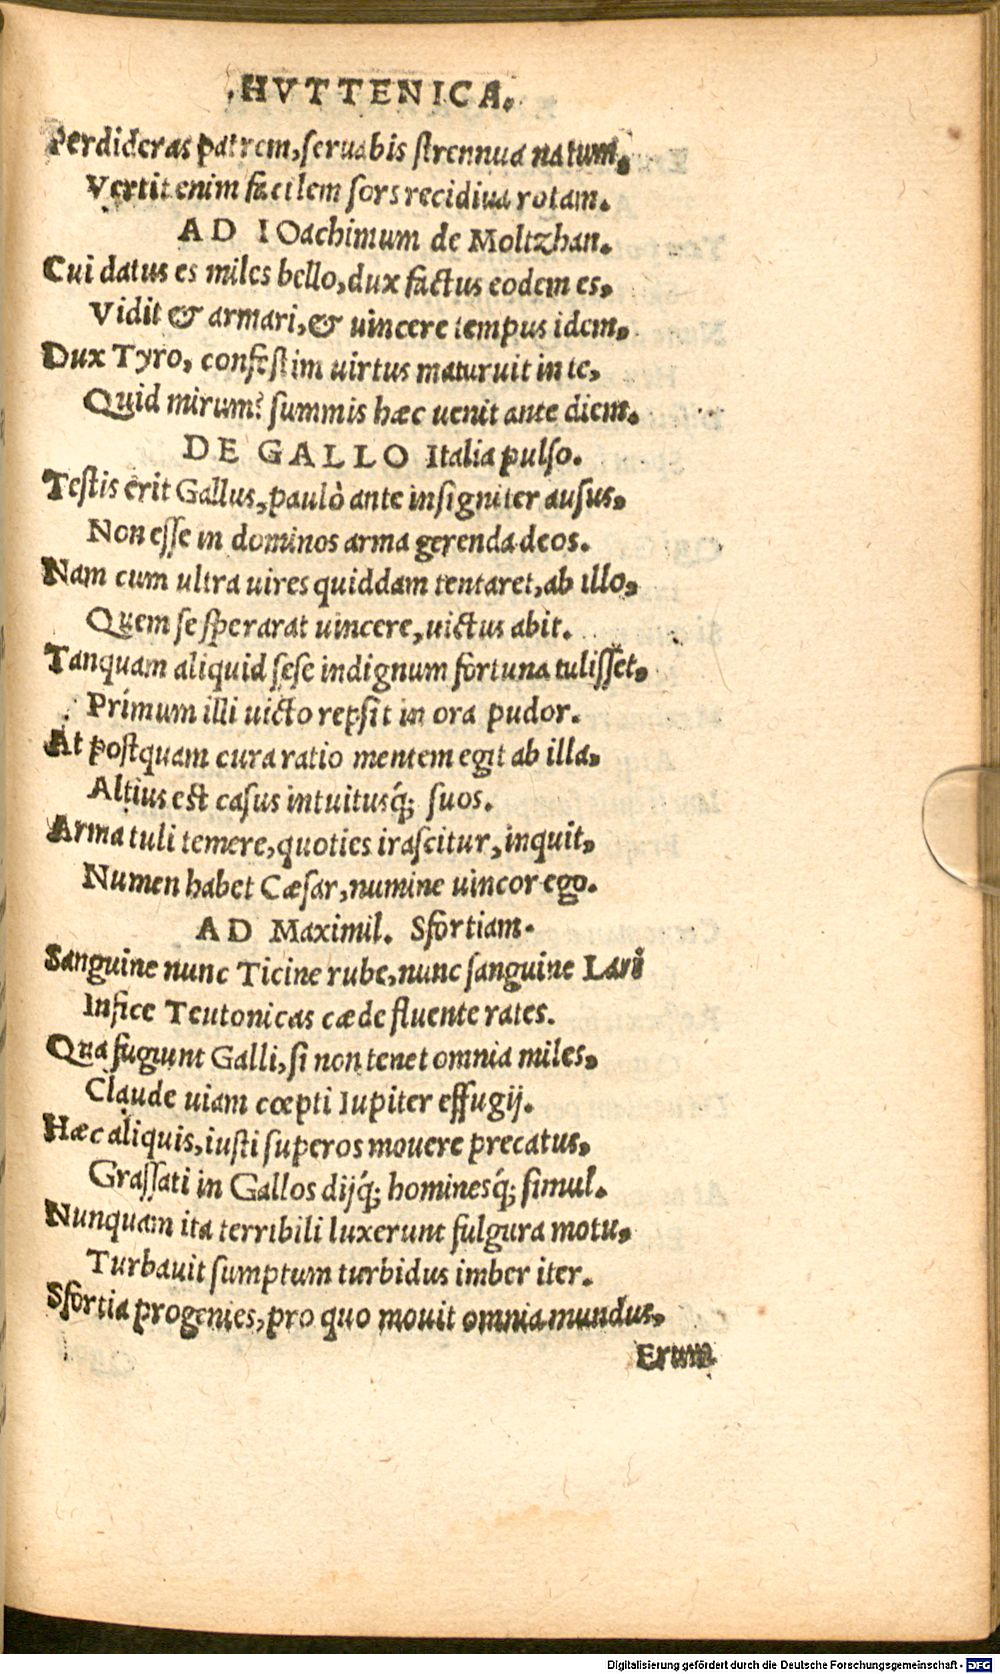 HVTTENICA.
Perdideras patrem, seruabis strennua natum,
Vertit enim facilem sors recidiua rotam.
AD IOachimum de Moltzhan.
Cui datus es miles bello, dux factus eodem es,
Vidit & armari, & uincere tempus idem,
Dux Tyro, confestim uirtus maturuit in te,
Quid mirum? summis hæc uenit ante diem.
DE GALLO Italia pulso.
Testis erit Gallus, paulò ante insigniter ausus,
Non esse in dominos arma gerenda deos.
Nam cum ultra uires quiddam tentaret, ab illo,
Quem se sperarat uincere, uictus abit.
Tanquam aliquid sese indignum fortuna tulisset,
Primum illi uicto repsit in ora pudor.
At postquam cura ratio mentem egit ab illa,
Altius est casus intuitusq́; suos.
Arma tuli temere, quoties irascitur, inquit,
Numen habet Cæsar, numine uincor ego.
AD Maximil. Sfortiam.
Sanguine nunc Ticine rube, nunc sanguine
Infice Teutonicas cæde fluente rates.
Qua fugiunt Galli, si non tenet omnia miles,
Claude uiam cœpti Iupiter effugij.
Hæc aliquis, iusti superos mouere precatus,
Grassati in Gallos dijq́; hominesq́; simul.
Nunquam ita terribili luxerunt fulgura motu,
Turbauit sumptum turbidus imber iter.
Sfortia progenies, pro quo mouit omnia mundus,
Erum
Digitalisierung gefördert durch die Deutsche Forschungsgemeinschaft - DFG